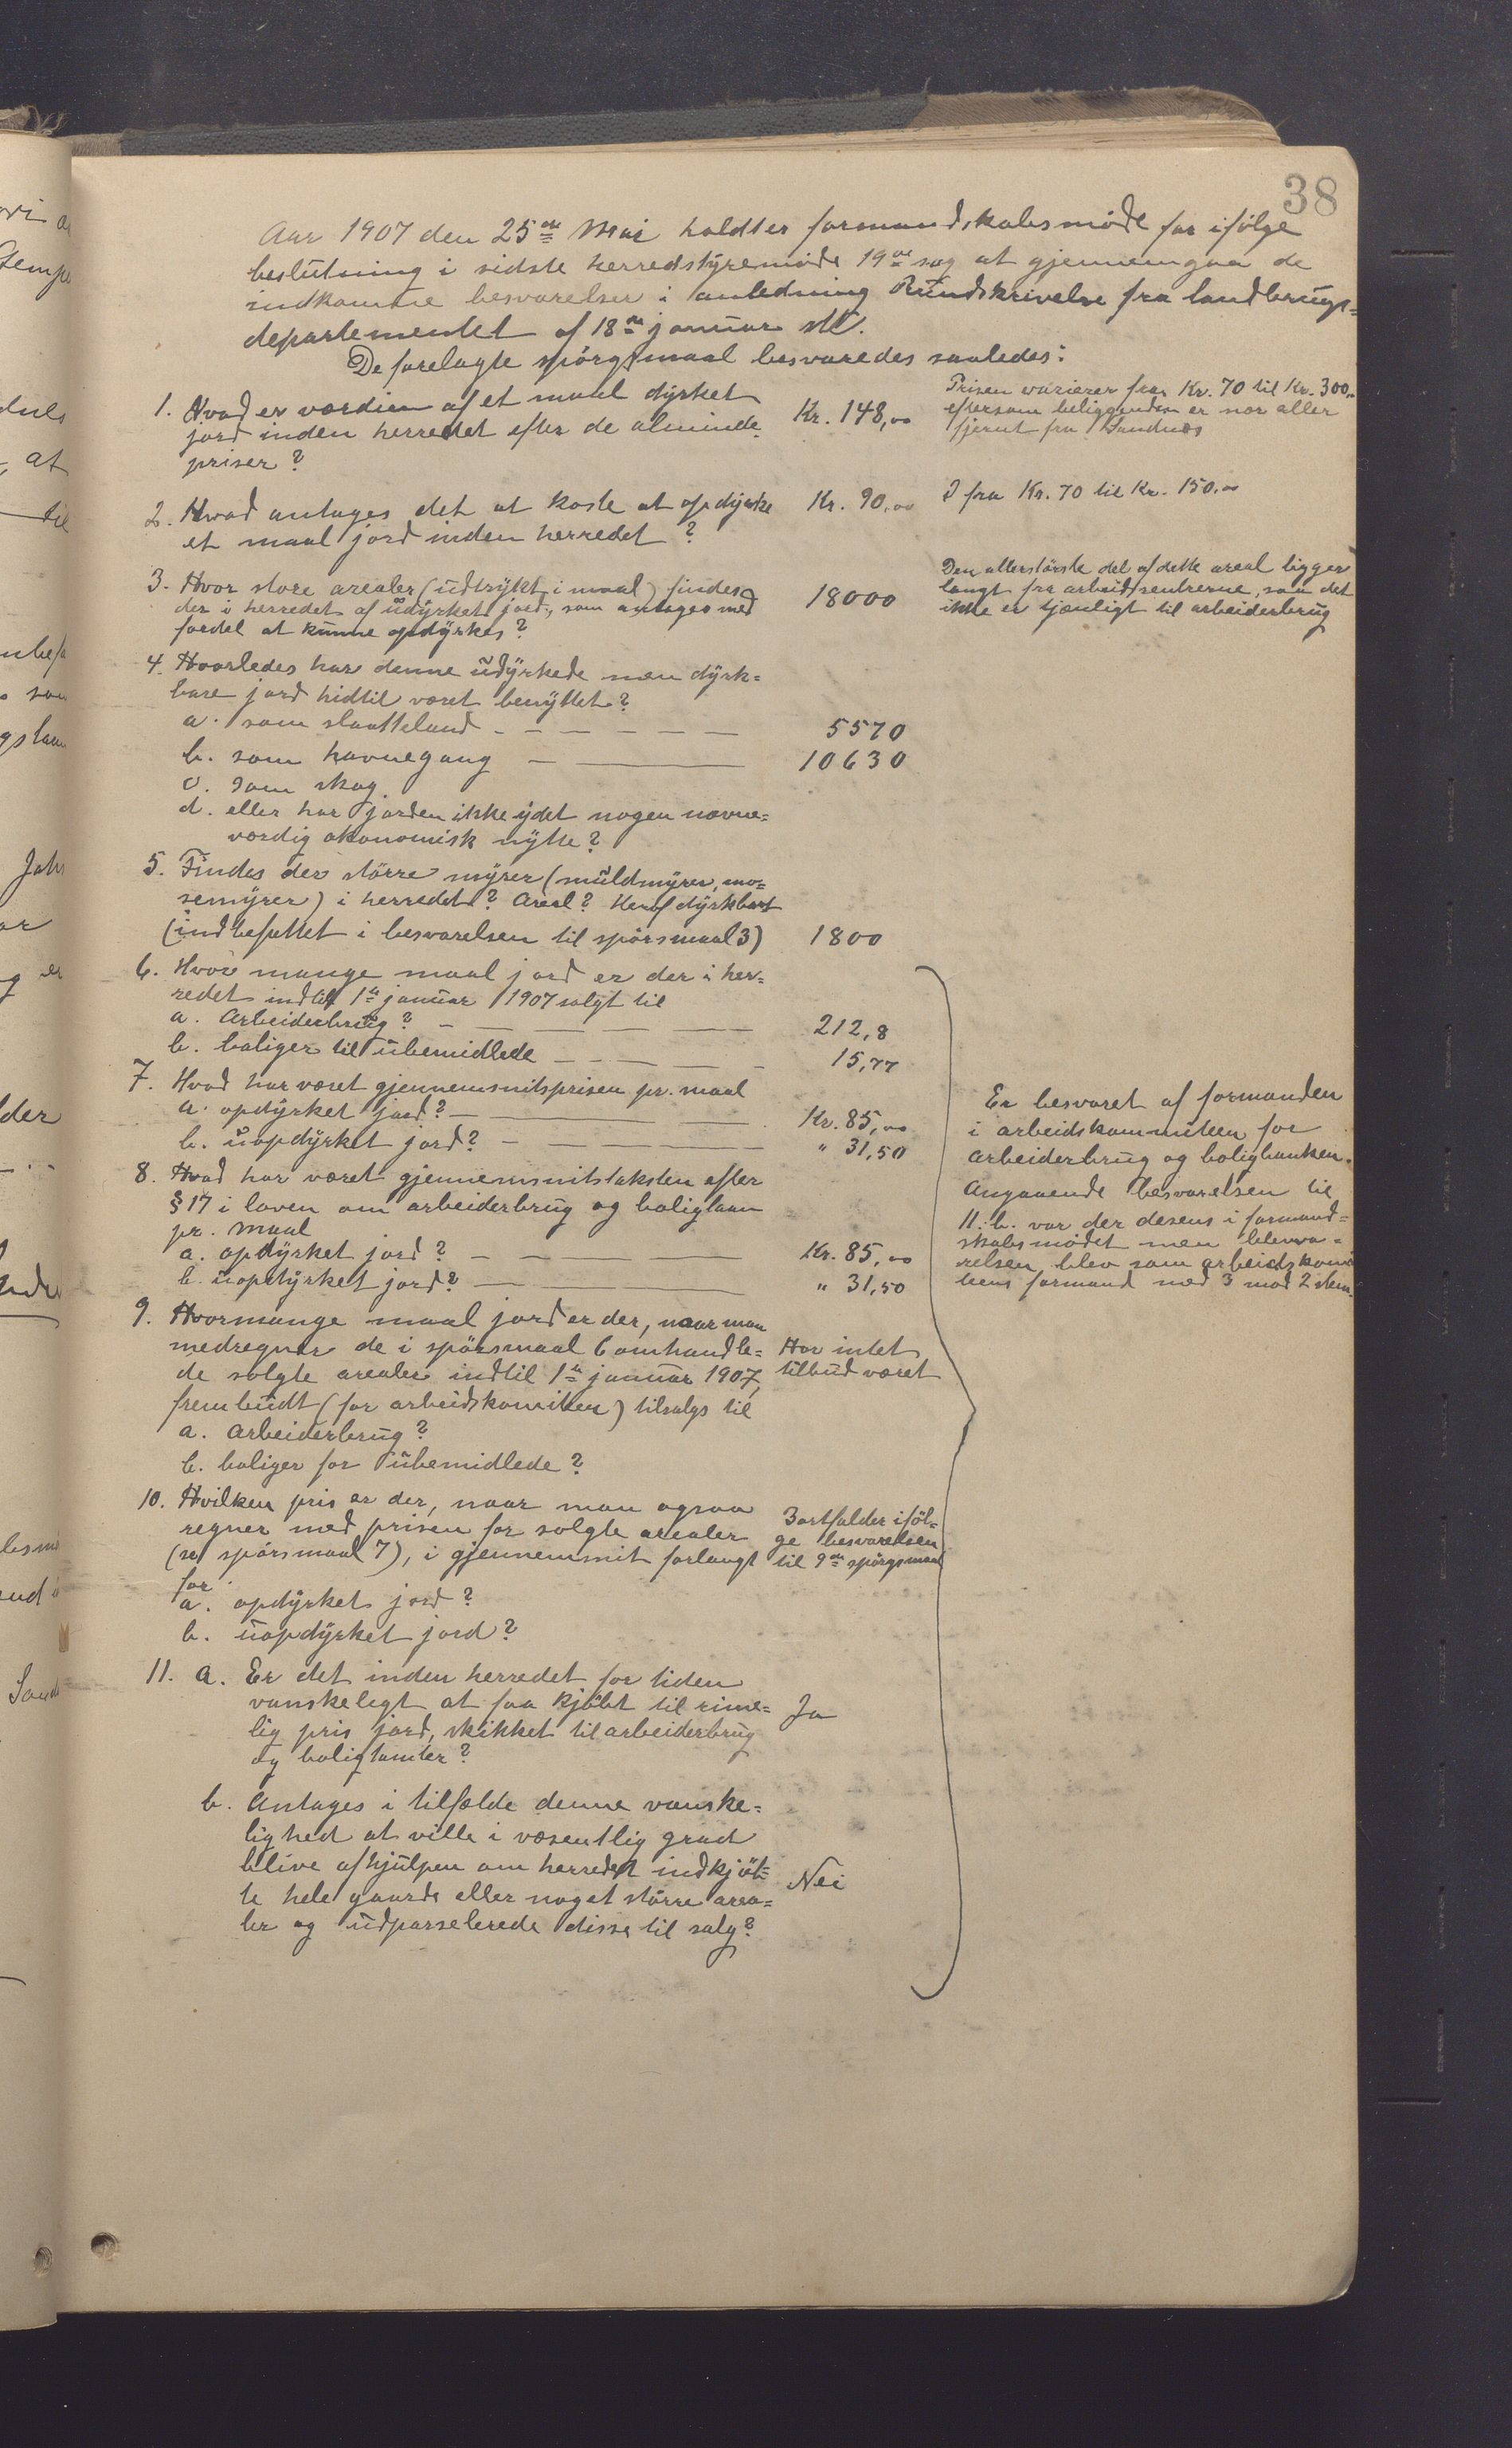 38
Aar 1907 den 25de Mai holdtes formandskabsmöde for ifölge
beslutning i sidste herredstyremöde 19de sag at gjennemgaa de
indkomne besvarelser i anledning Rundskrivelse fra landbrugs=
departementet af 18de januar
De forelagte spörgsmaal besvaredes saaledes:
1. Hvad er værdien af et maal dyrket
jord inden herredet efter de alminde.
priser?
Kr. 148,00
Prisen varierer fra Kr. 70 til Kr. 300,00
eftersom beliggenden er nær eller
fjernt fra Sandnæs
2. Hvad antages det at koste at opdyrke
et maal jord inden herredet?
Kr. 90,00
I fra Kr. 70 til Kr. 150,00
3. Hvor store arealer (udtrykt i maal) findes
der i herredet af udyrket jord, som antages med
fordel at kunne opdyrkes?
18000
Den allerstörste del af dette areal ligger
langt fra arbeidssentrerne, saa det
ikke er tjænligt til arbeiderbrug
4. Hvorledes har denne udyrkede men dyrk=
bare jord hidtil været benyttet?
a. som slaatteland
5570
b. som havnegang
10630
c. som skog
d. eller har jorden ikke ydet nogen nævne=
værdig økonomisk nytte?
5. Findes der större myrer (muldmyrer, mo=
semyrer) i herredet? Areal? Heraf dyrkbart
(indbefattet i besvarelsen til spörsmaal 3)
1800
6. Hvor mange maal jord er der i her=
redet indtil 1ste januar 1907 solgt til
a. Arbeiderbrug?
212,8
b. boliger til ubemidlede
15,77
7. Hvad har været gjennemsnitsprisen pr. maal
a. opdyrket jord?
Kr. 85,00
b. uopdyrket jord?
" 31,50
8. Hvad har været gjennemsnitstaksten efter
§ 17 i loven om arbeiderbrug og boliglaan
pr. maal
a. opdyrket jord?
Kr. 85,00
b. uopdyrket jord?
" 31,50
Er besvaret af formanden
i arbeidskommiteen for
arbeiderbrug og boligbanken.
Angaaende besvarelsen til
11. b. var der desens i formand=
skabsmödet men
relsen blev som arbeidskomi
teens formand med 3 mod 2 stem.
9. Hvormange maal jord er der, naar man
medregner de i spörsmaal 6 omhandle=
de solgte arealer indtil 1ste januar 1907,
frembudt (for arbeidskomiteen) tilsalgs til
a. arbeiderbrug?
b. boliger for ubemidlede?
Har intet
tilbud været
10. Hvilken pris er der, naar man ogsaa
regner med prisen for solgte arealer
(se spörsmaal 7), i gjennemsnit forlangt
for
a. opdyrket jord?
b. uopdyrket jord?
Bortfalder iföl=
ge besvarelsen
til 9de spörgsmaal
11. a. Er det inden herredet for tiden
vanskeligt at faa kjöbt til rime=
lig pris jord, skikket til arbeiderbrug
og boligtomter?
Ja
b. Antages i tilfælde denne vanske=
lighed at ville i væsentlig grad
blive afhjulpen om herredet indkjöb=
te hele gaarde eller noget större area=
ler og udparselerede disse til salg?
Nei